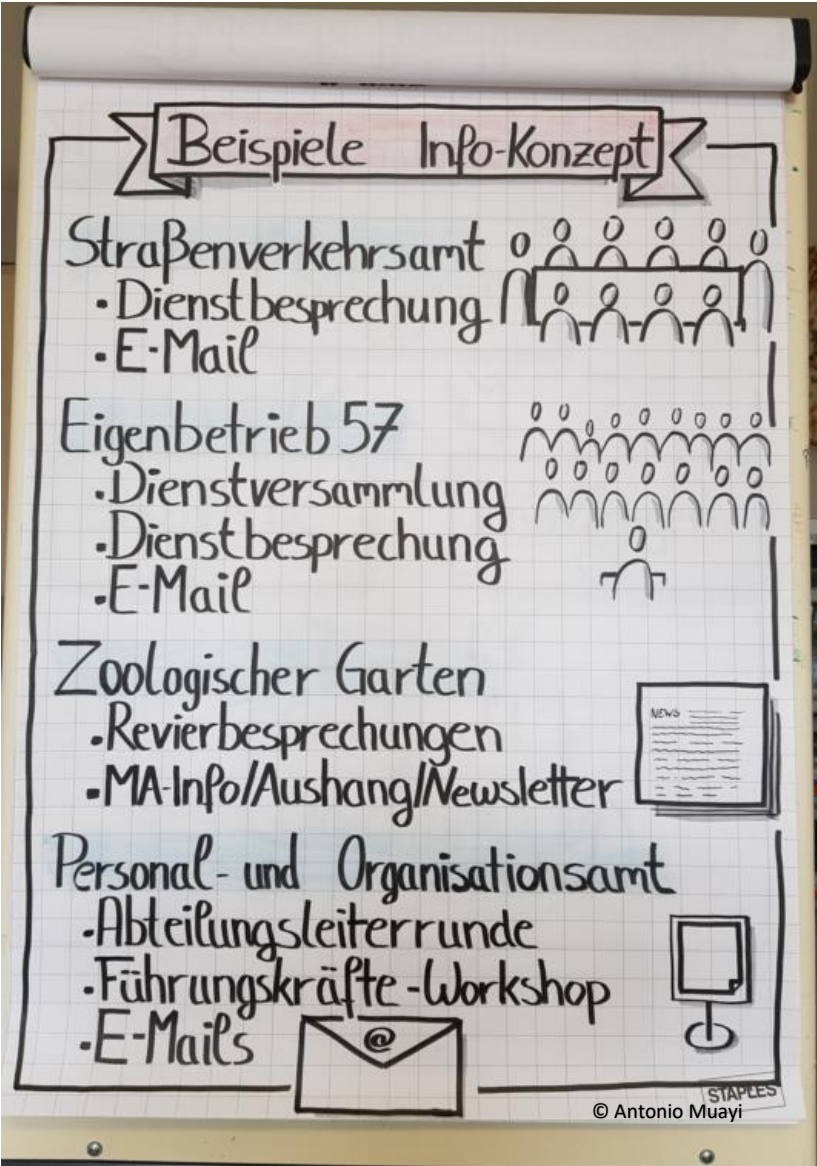 Beispiele Info-Konzept
Straßenverkehrsamt
• Dienstbesprechung
• E-Mail
Eigenbetrieb 57
• Dienstversammlung
• Dienstbesprechung
• E-Mail
Zoologischer Garten
• Revierbesprechungen
• MA-Info/Aushang/Newsletter
NEWS
Personal- und Organisationsamt
• Abteilungsleiterrunde
• Führungskräfte-Workshop
• E-Mails
@
STAPLES
© Antonio Muayi